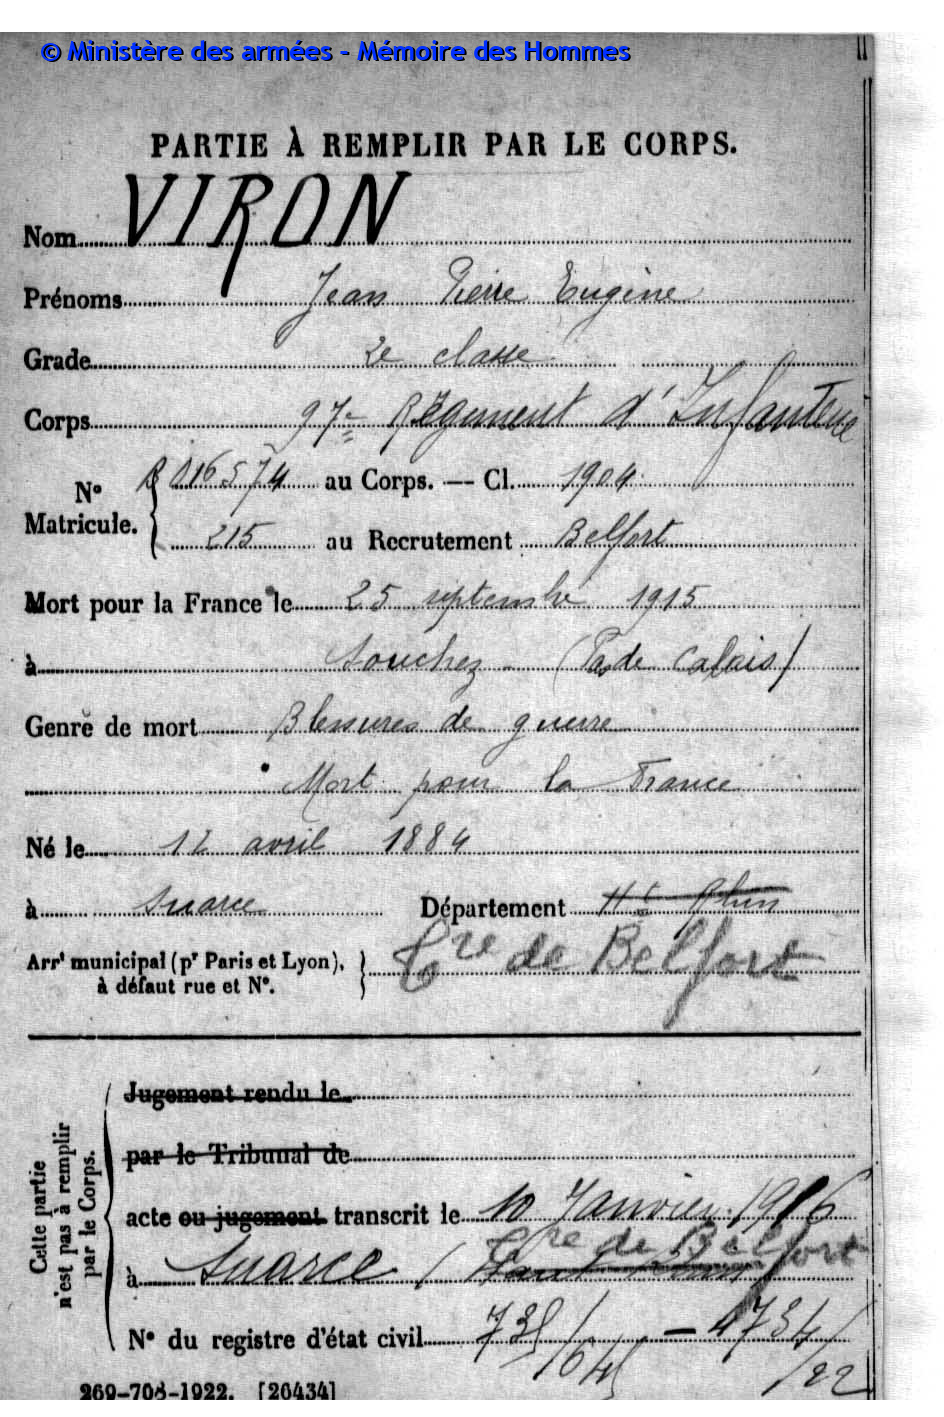 © Ministère des armées - Mémoire des Hommes
PARTIE À REMPLIR PAR LE CORPS.
Nom VIRON
Prénoms Jean Pierre Eugène
Grade 2e classe
Corps 97e Régiment d'Infanterie
N° Matricule. 016574 au Corps. — Cl. 1904
215 au Recrutement Belfort
Mort pour la France le 25 septembre 1915
à Souchez (Pas de Calais)
Genre de mort Blessures de guerre
Mort pour la France
Né le 12 avril 1884
à Suarce Département Ht Rhin
Arrt municipal (pr Paris et Lyon), à défaut rue et N°. Tre de Belfort
Cette partie n'est pas à remplir par le Corps.
Jugement rendu le
par le Tribunal de
acte ou jugement transcrit le 10 Janvier 1916
Tre de Belfort
à Suarce (Haut Rhin)
N° du registre d'état civil
269-708-1922. [26434]